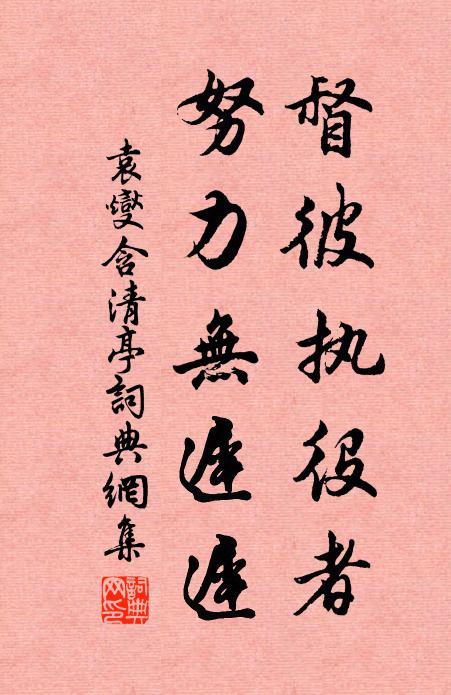 督彼执役者
努力無遲遲
袁燮含清亭詞典網集
詞典网印